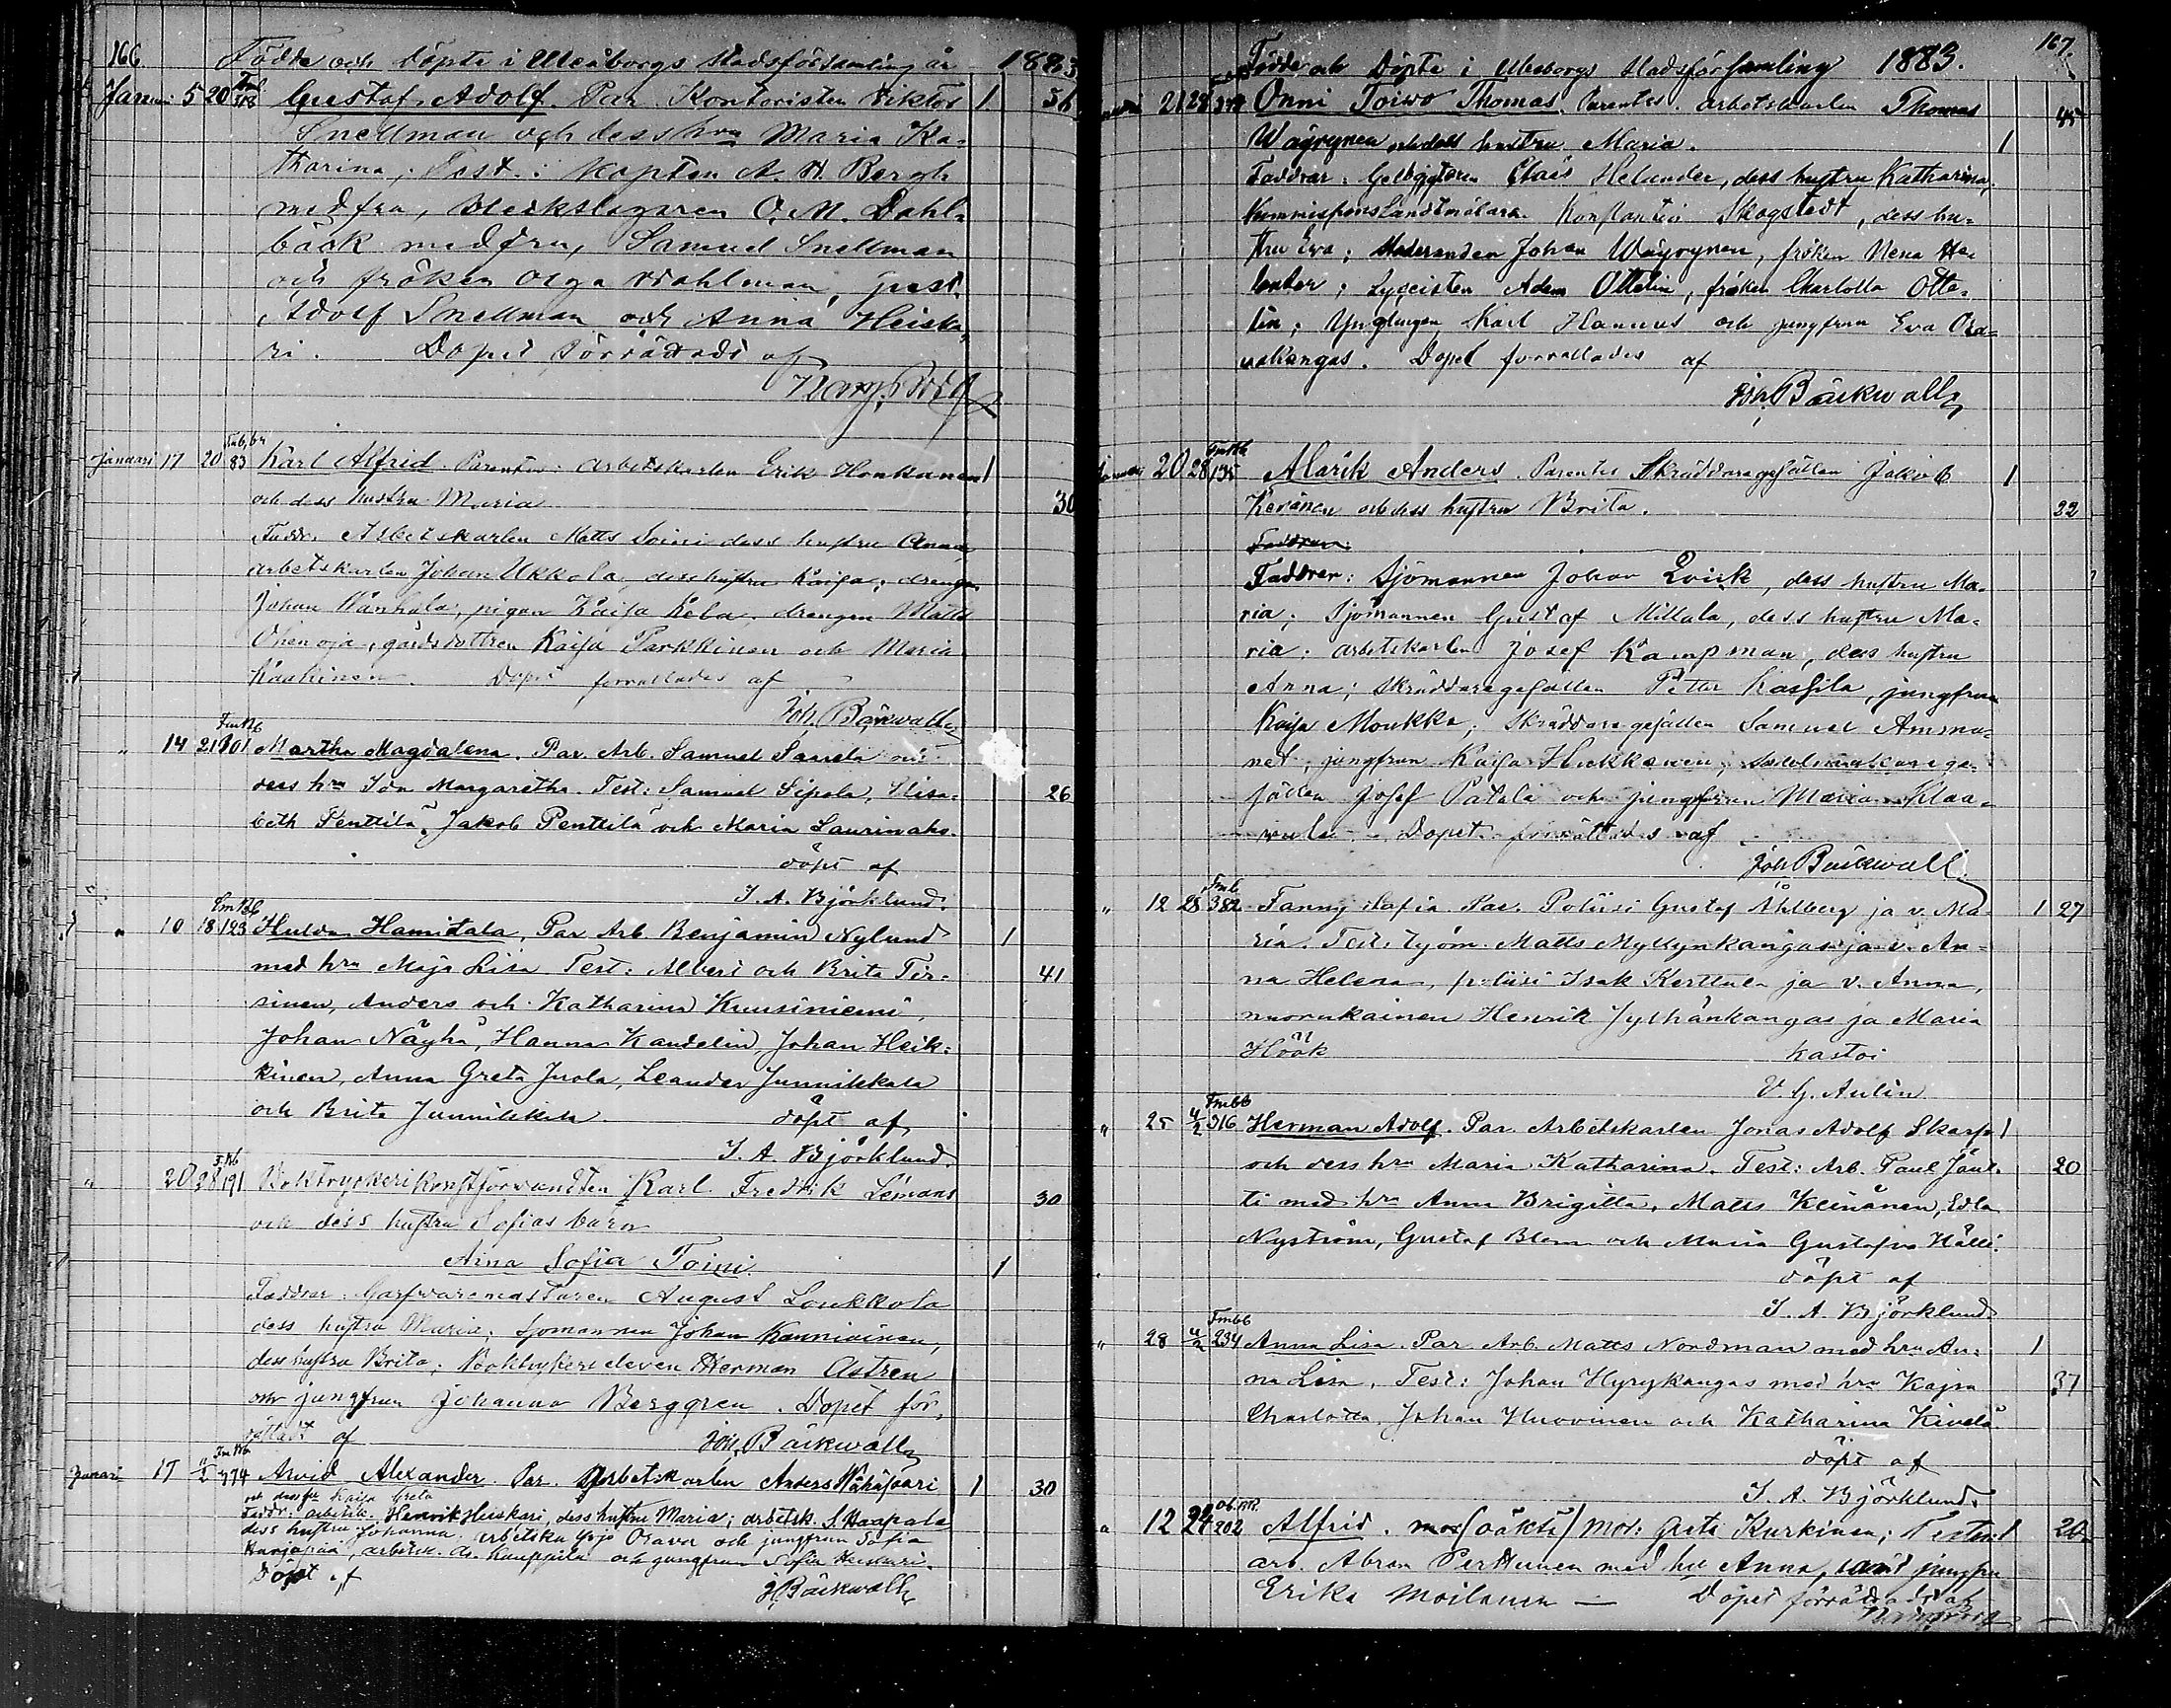 166. Födde och döpte i Uleåborgs stadsförsamling år 1883
Januari 5 20 Fmb 518 Gustaf Adolf. Par. Kontoristen Viktor 1 36
Snellman och dess hru Maria Ka-
tharina; Test.: Kapten A. H. Bergh
med fru, Bleckslagaren O. M. Dahl-
bäck med fru, Samuel Snellman
och fröken Olga Wahlman, 
Adolf Snellman och Anna Heiska-
ri. Dopet förrättadt af

Januari 17 20 83 Karl Alfrid. Parenter: arbetskarlen Erik Honkanen 1
och dess hustru Maria 30
Faddr. Arbetskarlen Matts Soini dess hustru Anna,
arbetskarlen Johan Ukkola, dess hustru Kaisa; drengen
Johan Wänhälä, pigan Kaisa Kela, drengen Matts
Ohenoja, gårdsdottren Kaisa Parkkinen och Maria
Kaakinen. Dopet förrättades af
Joh. Bäckwall
" 14 21 101 Martha Magdalena. Par. Arb. Samuel Sassela och
dess hru Ida Margaretha. Test: Samuel Sipola, Elisa- 26
beth Penttilä, Jakob Penttilä och Maria Laurinaho.
döpt af
I. A. Björklund.
" 10 18 123 Hulda Hamitala, Par. Arb. Benjamin Nylund 1
med hru Maja Lisa Test: Albert och Brita Tör- 41
sinen, Anders och Katharina Kuusiniemi,
Johan Näyhä, Hanna Kandelin, Johan Heik-
kinen, Anna Greta Juola, Leander Junnikkala
och Brita Junnikkala döpt af
I. A. Björklund.
" 20 28 191 Boktryckerikonstförvandten Karl Fredrik Lemans 30
och dess hustru Sofias barn
Aina Sofia Toini. 1
Faddrar: Garfwaremästaren August Loukkola
dess hustru Maria; sjömannen Johan Kanniainen,
dess hustru Brita; Boktryckerieleven Herman Astren
och jungfrun Johanna Berggren. Dopet för-
rättadt af Joh. Bäckwall
Januari 17 4/2 774 Arvid Alexander. Par. Arbetskarlen Anders Wähäsaari 1 30
och dess hu Kaisa Greta
Faddr: arbetsk. Henrik Heiskari, dess hustru Maria; arbetsk. S. Haapala
dess hustru Johanna. arbetska Yrjö Orava och jungfrun Sofia
Harjapää, arbetsk. Kauppila och jungfrun Sofia Heiskari.
Döpt af J. Bäckwall
167.
Födde och Döpte i Uleåborgs stadsförsamling 1883.
21 28 Onni Toiwo Thomas. Parentes. arbetskarlen Thomas 45
Wäyrynen och dess hustru Maria. 1
Faddrar: Gelbgjutaren Claës Helander, dess hustru Katharina;
Kommissionslandtmätaren Konstantin Skogstedt, dess hu-
stru Eva; Studeranden Johan Wäyrynen, fröken Nena He-
lander; Lyceisten Adam Ottelin, fröken Charlotta Otte-
lin; Ynglingen Karl Hannus och jungfrun Eva Ora-
vakangas. Dopet förrättades af
Joh. Bäckwall
Januari 20 28 135 Alarik Anders. Parentes Skräddaregesällen Jakob 1
Keränen och dess hustru Brita. 22
Faddrar:
Faddrar: Sjömannen Johan Qvick, dess hustru Ma-
ria; Sjömannen Gustaf Mittala, dess hustru Ma-
ria; arbetskarlen Josef Kampman, dess hustru
Anna; Skräddaregesällen Petter Kassila, jungfrun
Kaisa Moukka; Skräddaregesällen Samuel Ammu-
net, jungfrun Kaisa Hukkanen; sadelmakarege-
sällen Josef Patala och jungfrun Maria Klaa-
vula. Dopet förrättades af
Joh Bäckwall
" 12 28 382 Fanny Sofia. Par. Poliisi Gustaf Åhlberg ja v. Ma- 1 27
ria. Test. työm. Matts Myllynkangas ja v. An-
na Helena, poliisi Isak Kerttula ja v. Anna,
nuorukainen Henrik Jylhänkangas ja Maria
Höök kastoi
V. G. Aulin
" 25 4/2 316 Herman Adolf. Par. Arbetskarlen Jonas Adolf Skarp 1
och dess hru Maria Katharina. Test: Arb. Paul Jänt- 20
ti med hru Anna Brigitta, Matts Keinänen, Edla
Nyström, Gustaf Blom och Maria Gustafva Hälli.
döpt af
I. A. Björklund
" 28 4/2 234 Anna Lisa. Par. Arb. Matts Nordman med hru An- 1
na Lisa, Test: Johan Hyrykangas med hru Kajsa 37
Charlotta, Johan Huovinen och Katharina Kivelä
döpt af
I. A. Björklund.
" 12 24 202 Alfrid. (oäkta) Mod: Greta Kurkinen; Testes: 1 20
arb. Abram Perttunen med hu Anna, samt jungfru
Erika Moilanen — Dopet förrättadt af